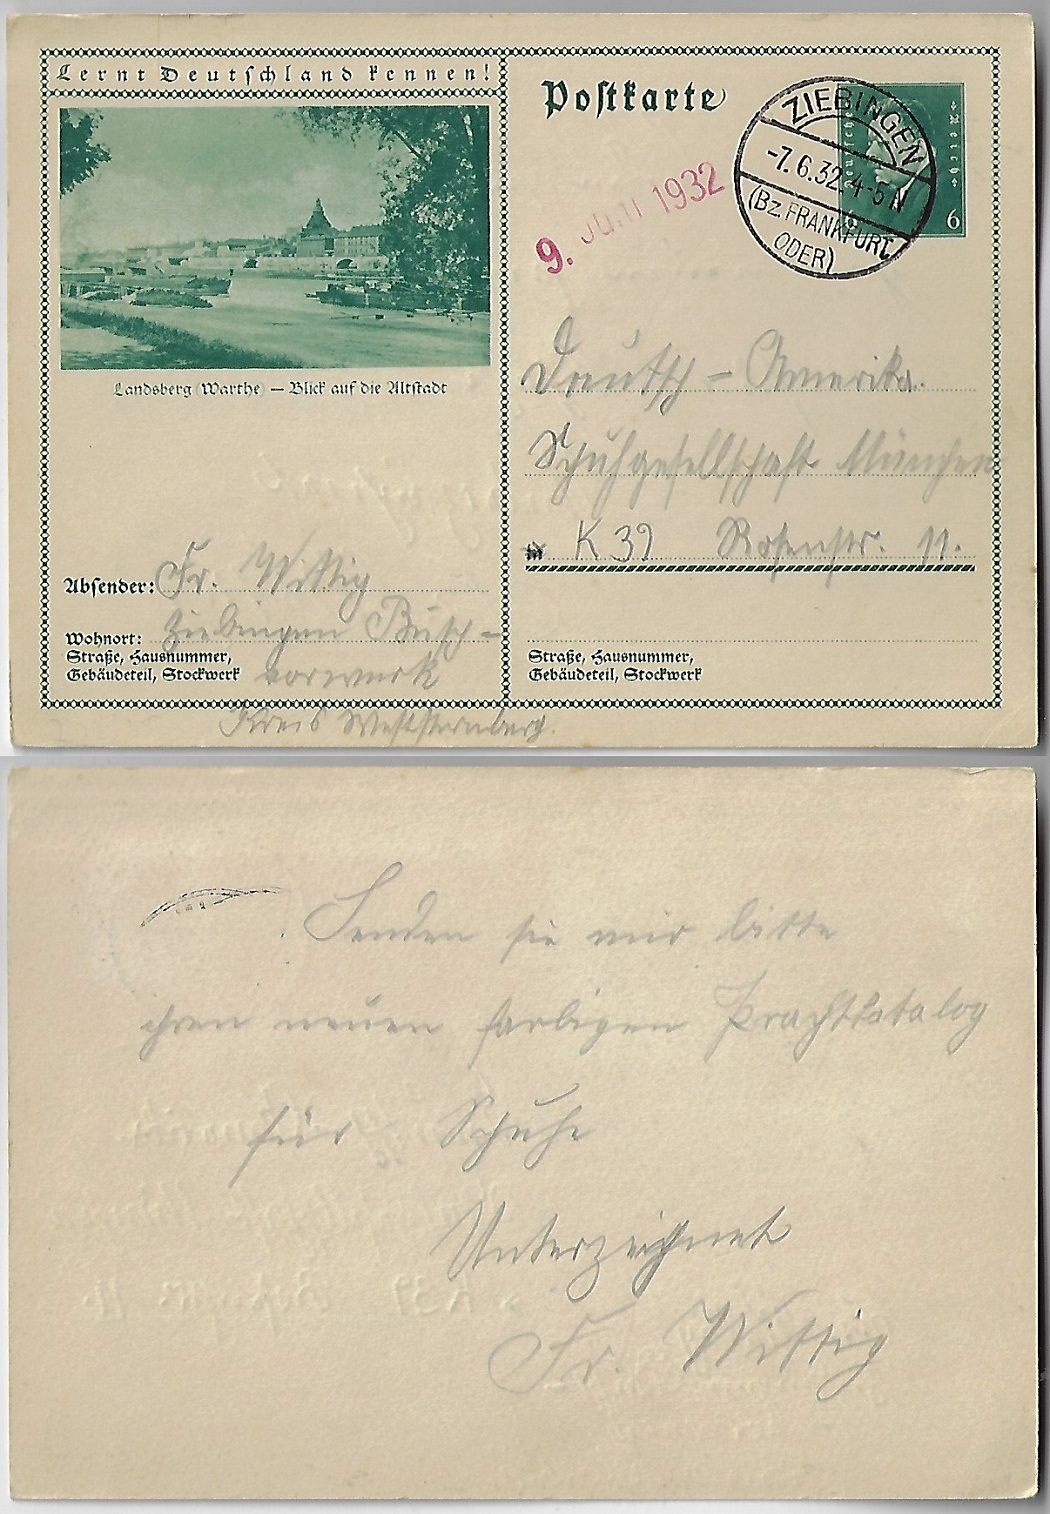 Lernt Deutschland kennen!
Landsberg (Warthe) — Blick auf die Altstadt
Absender: Fr. Wittig
Wohnort: Ziebingen Busch-
Straße, Hausnummer,
Gebäudeteil, Stockwerk vorwerk
Kreis Weststernberg.
Postkarte
9. Juni 1932
ZIEBINGEN
-7.6.32.4-5N
(Bz. FRANKFURT
ODER)
Deutsches Reich
6 6
Deutsch-Amerika.
Schuhgesellschaft München
in K 39 Rosenstr. 11.
Straße, Hausnummer,
Gebäudeteil, Stockwerk
Senden sie mir bitte
ihren neuen farbigen Prachtkatalog
für Schuhe
Unterzeichnet
Fr. Wittig